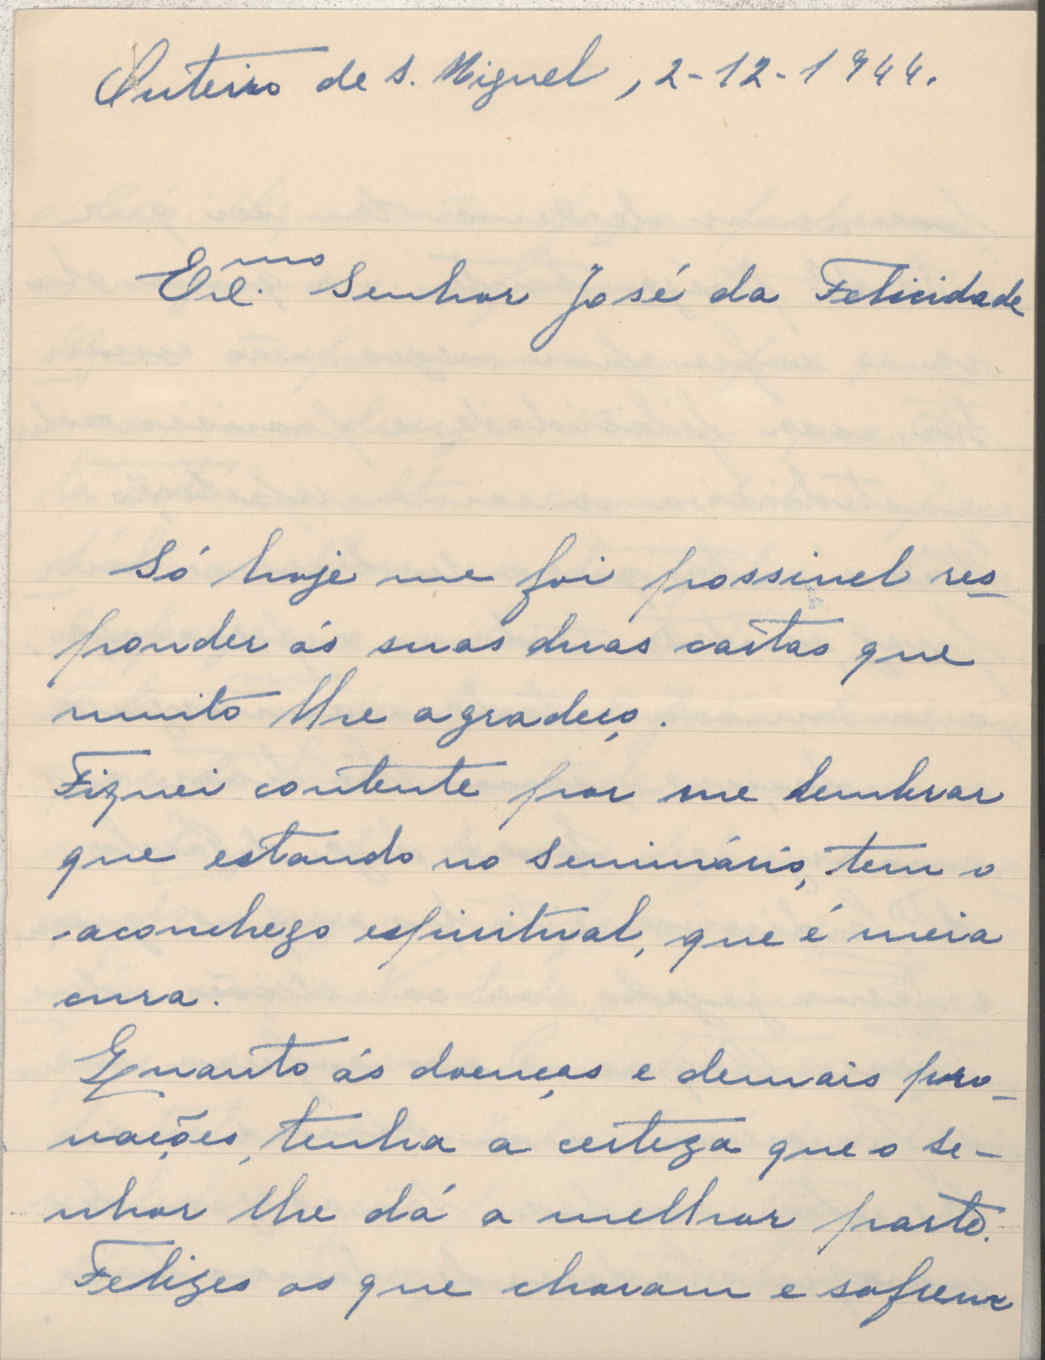 Outeiro de S. Miguel, 2-12-1944.
Ex.mo Senhor José da Felicidade
Só hoje me foi possivel res-
ponder ás suas duas cartas que
muito lhe agradeço.
Fiquei contente por me lembrar
que estando no Seminário, tem o
aconchego espiritual, que é meia
cura.
Quanto ás doenças e demais pro-
vações, tenha a certeza que o Se-
nhor lhe dá a melhor parte.
Felizes os que choram e sofrem